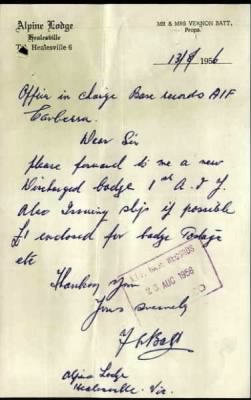 Alpine Lodge
Healesville
Tel. Healesville 6
MR & MRS VERNON BATT,
Props.
13/8/1956
Officer in charge Base records AIF
Canberra
Dear Sir
please forward to me a new
Discharged badge 1st A.I.F.
Also Issuing slip if possible
£1 enclosed for badge Postage
etc
Thanking you
Yours sincerely
Batt
A.I.F. BASE RECORDS
23 AUG 1956
Alpine Lodge
Healesville. Vic.